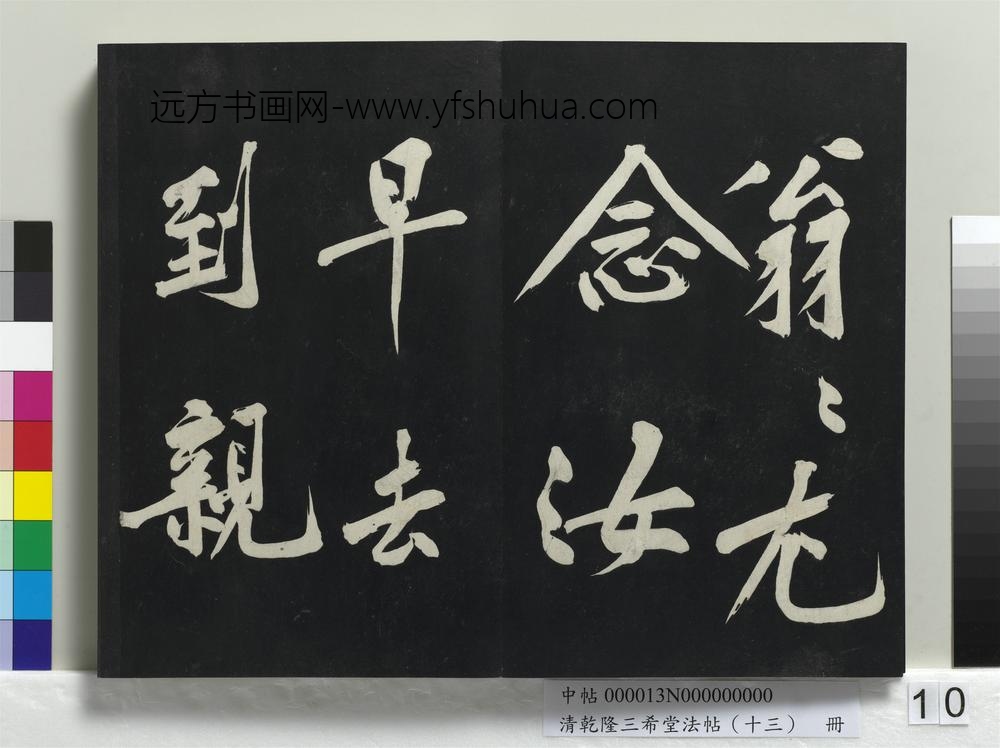 远方书画网-www.yfshuhua.com
翁〻尤
念汝
早去
到親
中帖 000013N000000000
清乾隆三希堂法帖（十三） 冊
10